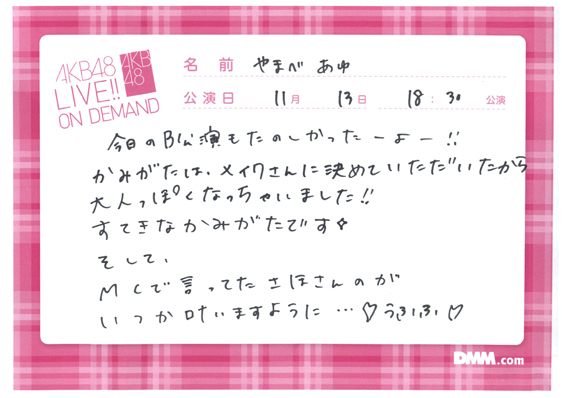 AKB48
LIVE!!
ON DEMAND
AKB
48
名前 やまべ あゆ
公演日 11月 13日 18:30 公演
今日の公演もたのしかったーよー!!
かみがたは、メイクさんに決めていただいたから
大人っぽくなっちゃいました!!
すてきなかみがたです
そして、
MCで言ってたさほさんのが
いつか叶いますように…♡うふふ♡
DMM.com